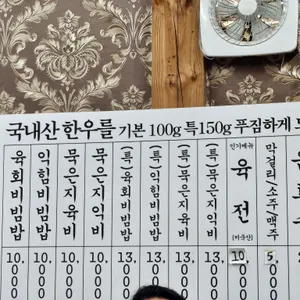 국내산 한우를 기본 100g 특150g 푸짐하게
육회비빔밥 10.000
익힘비빔밥 10.000
묵은지육비 10.000
묵은지익비 10.000
(특)육회비빔밥 13.000
(특)익힘비빔밥 13.000
(특)묵은지육비 13.000
(특)묵은지익비 13.000
인기메뉴 육전 [미국산] 10.000
막걸리/소주/맥주 5.000